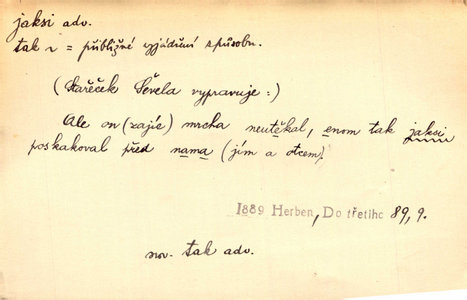 jaksi adv.
tak 2 = přibližné vyjádření způsobu.
(Stařeček Ševela vypravuje:)
Ale on (zajíc) mrcha neutěkal, enom tak jaksi
poskakoval před nama (jím a otcem)
1889 Herben, Do třetího 89, 9.
srov. tak adv.